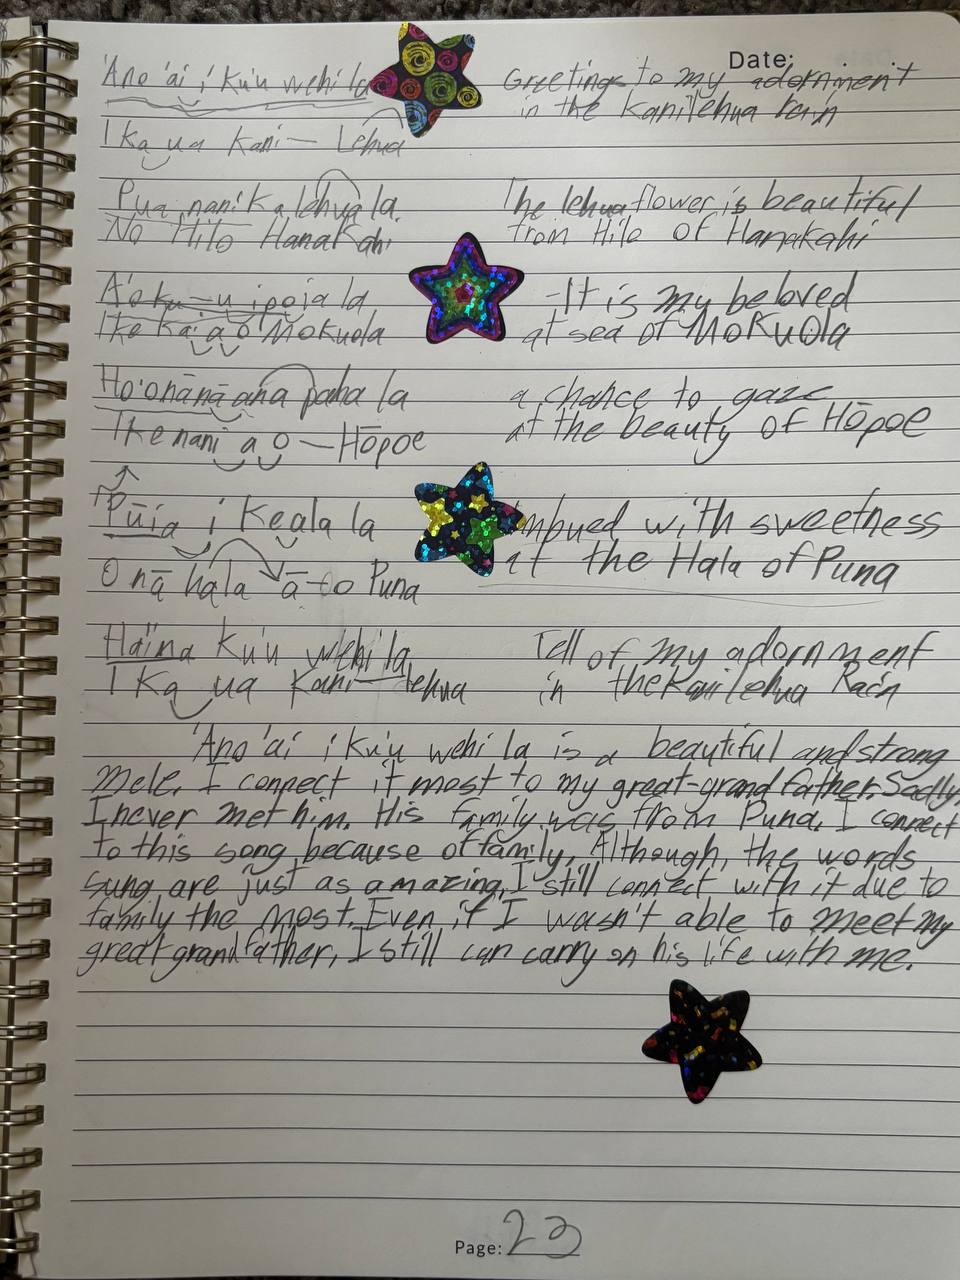 Date:
'Ano 'ai i ku'u wehi la Greetings to my adornment
in the Kanilehua rain
I ka ua Kani-Lehua
Pua nani ka lehua la. The lehua flower is beautiful
No Hilo Hanakahi from Hilo of Hanakahi
A'o ku-u ipo ia la -It is my beloved
I ke kai a o Mokuola at sea of Mokuola
Ho'onānā ana paha la a chance to gaze
I ke nani a o - Hōpoe at the beauty of Hōpoe
Pūia i ke ala la imbued with sweetness
O nā hala ā-o Puna at the Hala of Puna
Ha'ina ku'u wehi la Tell of my adornment
I Ka ua Kani-lehua in the Kanilehua Rain
'Ano 'ai i ku'u wehi la is a beautiful and strong
mele. I connect it most to my great-grandfather. Sadly,
I never met him. His family was from Puna. I connect
to this song because of family. Although, the words
sung are just as amazing, I still connect with it due to
family the most. Even if I wasn't able to meet my
great grandfather, I still can carry on his life with me.
Page: 23